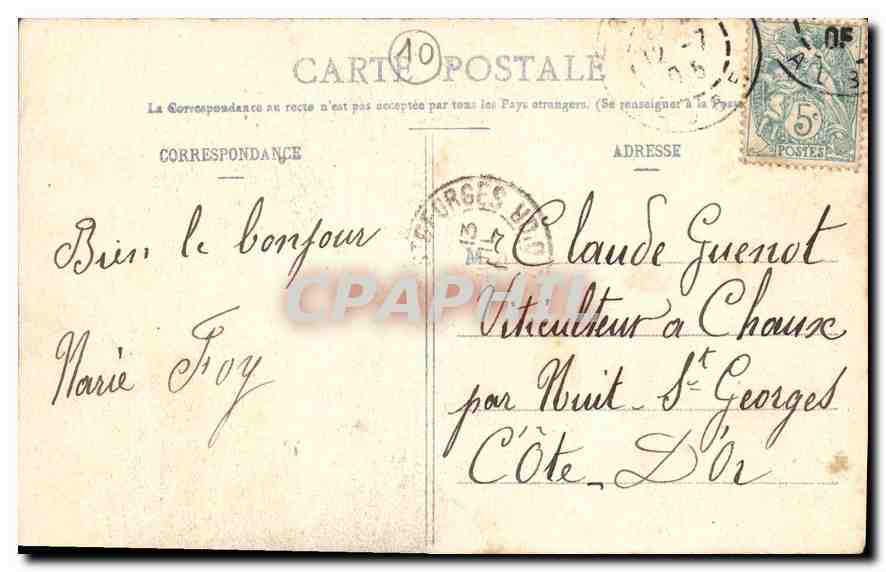 10
CARTE POSTALE
La Correspondance au recto n'est pas acceptée par tous les Pays étrangers. (Se renseigner à la Poste
CORRESPONDANCE
ADRESSE
5c
POSTES
Bien le bonjour
Marie Foy
Mr Claude Guenot
Viticulteur a Chaux
par Nuit St Georges
Côte D'Or
GEORGES
CPAPHIL